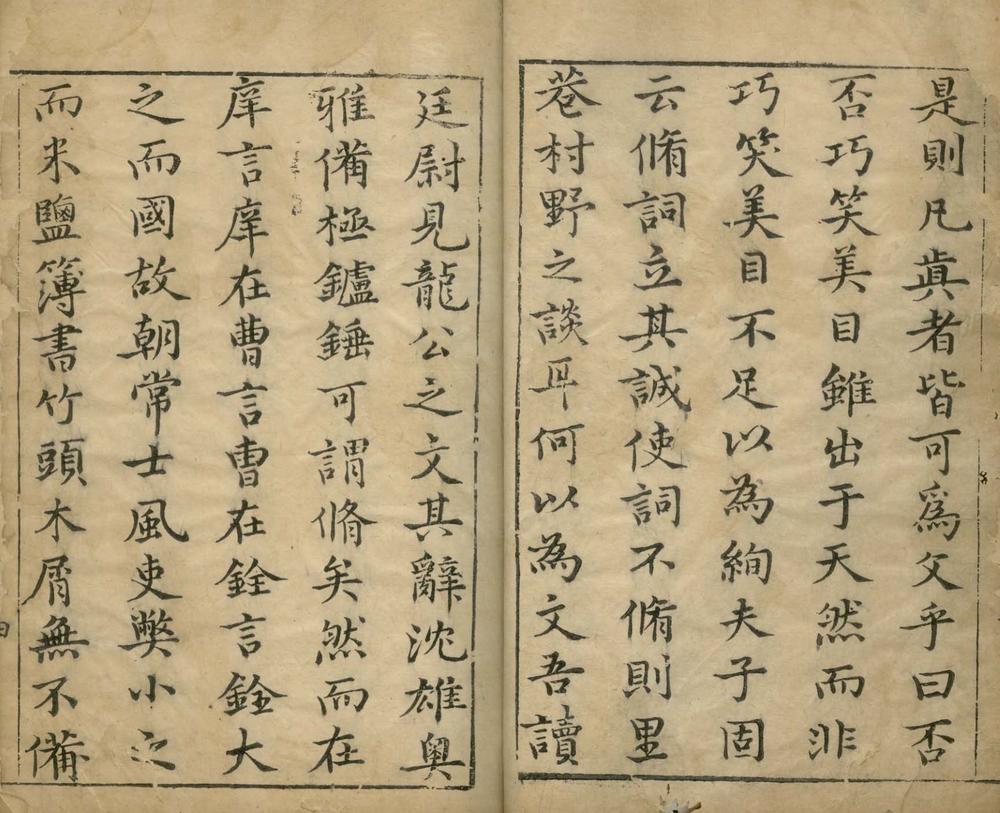 是則凡眞者皆可爲文乎曰否
否巧笑美目雖出于天然而非
巧笑美目不足以為絢夫子固
云脩詞立其誠使詞不脩則里
巷村野之談耳何以為文吾讀
廷尉見龍公之文其辭沈雄奥
雅備極鑪錘可謂脩矣然而在
庠言庠在曹言曹在銓言銓大
之而國故朝常士風吏弊小之
而米鹽簿書竹頭木屑無不備